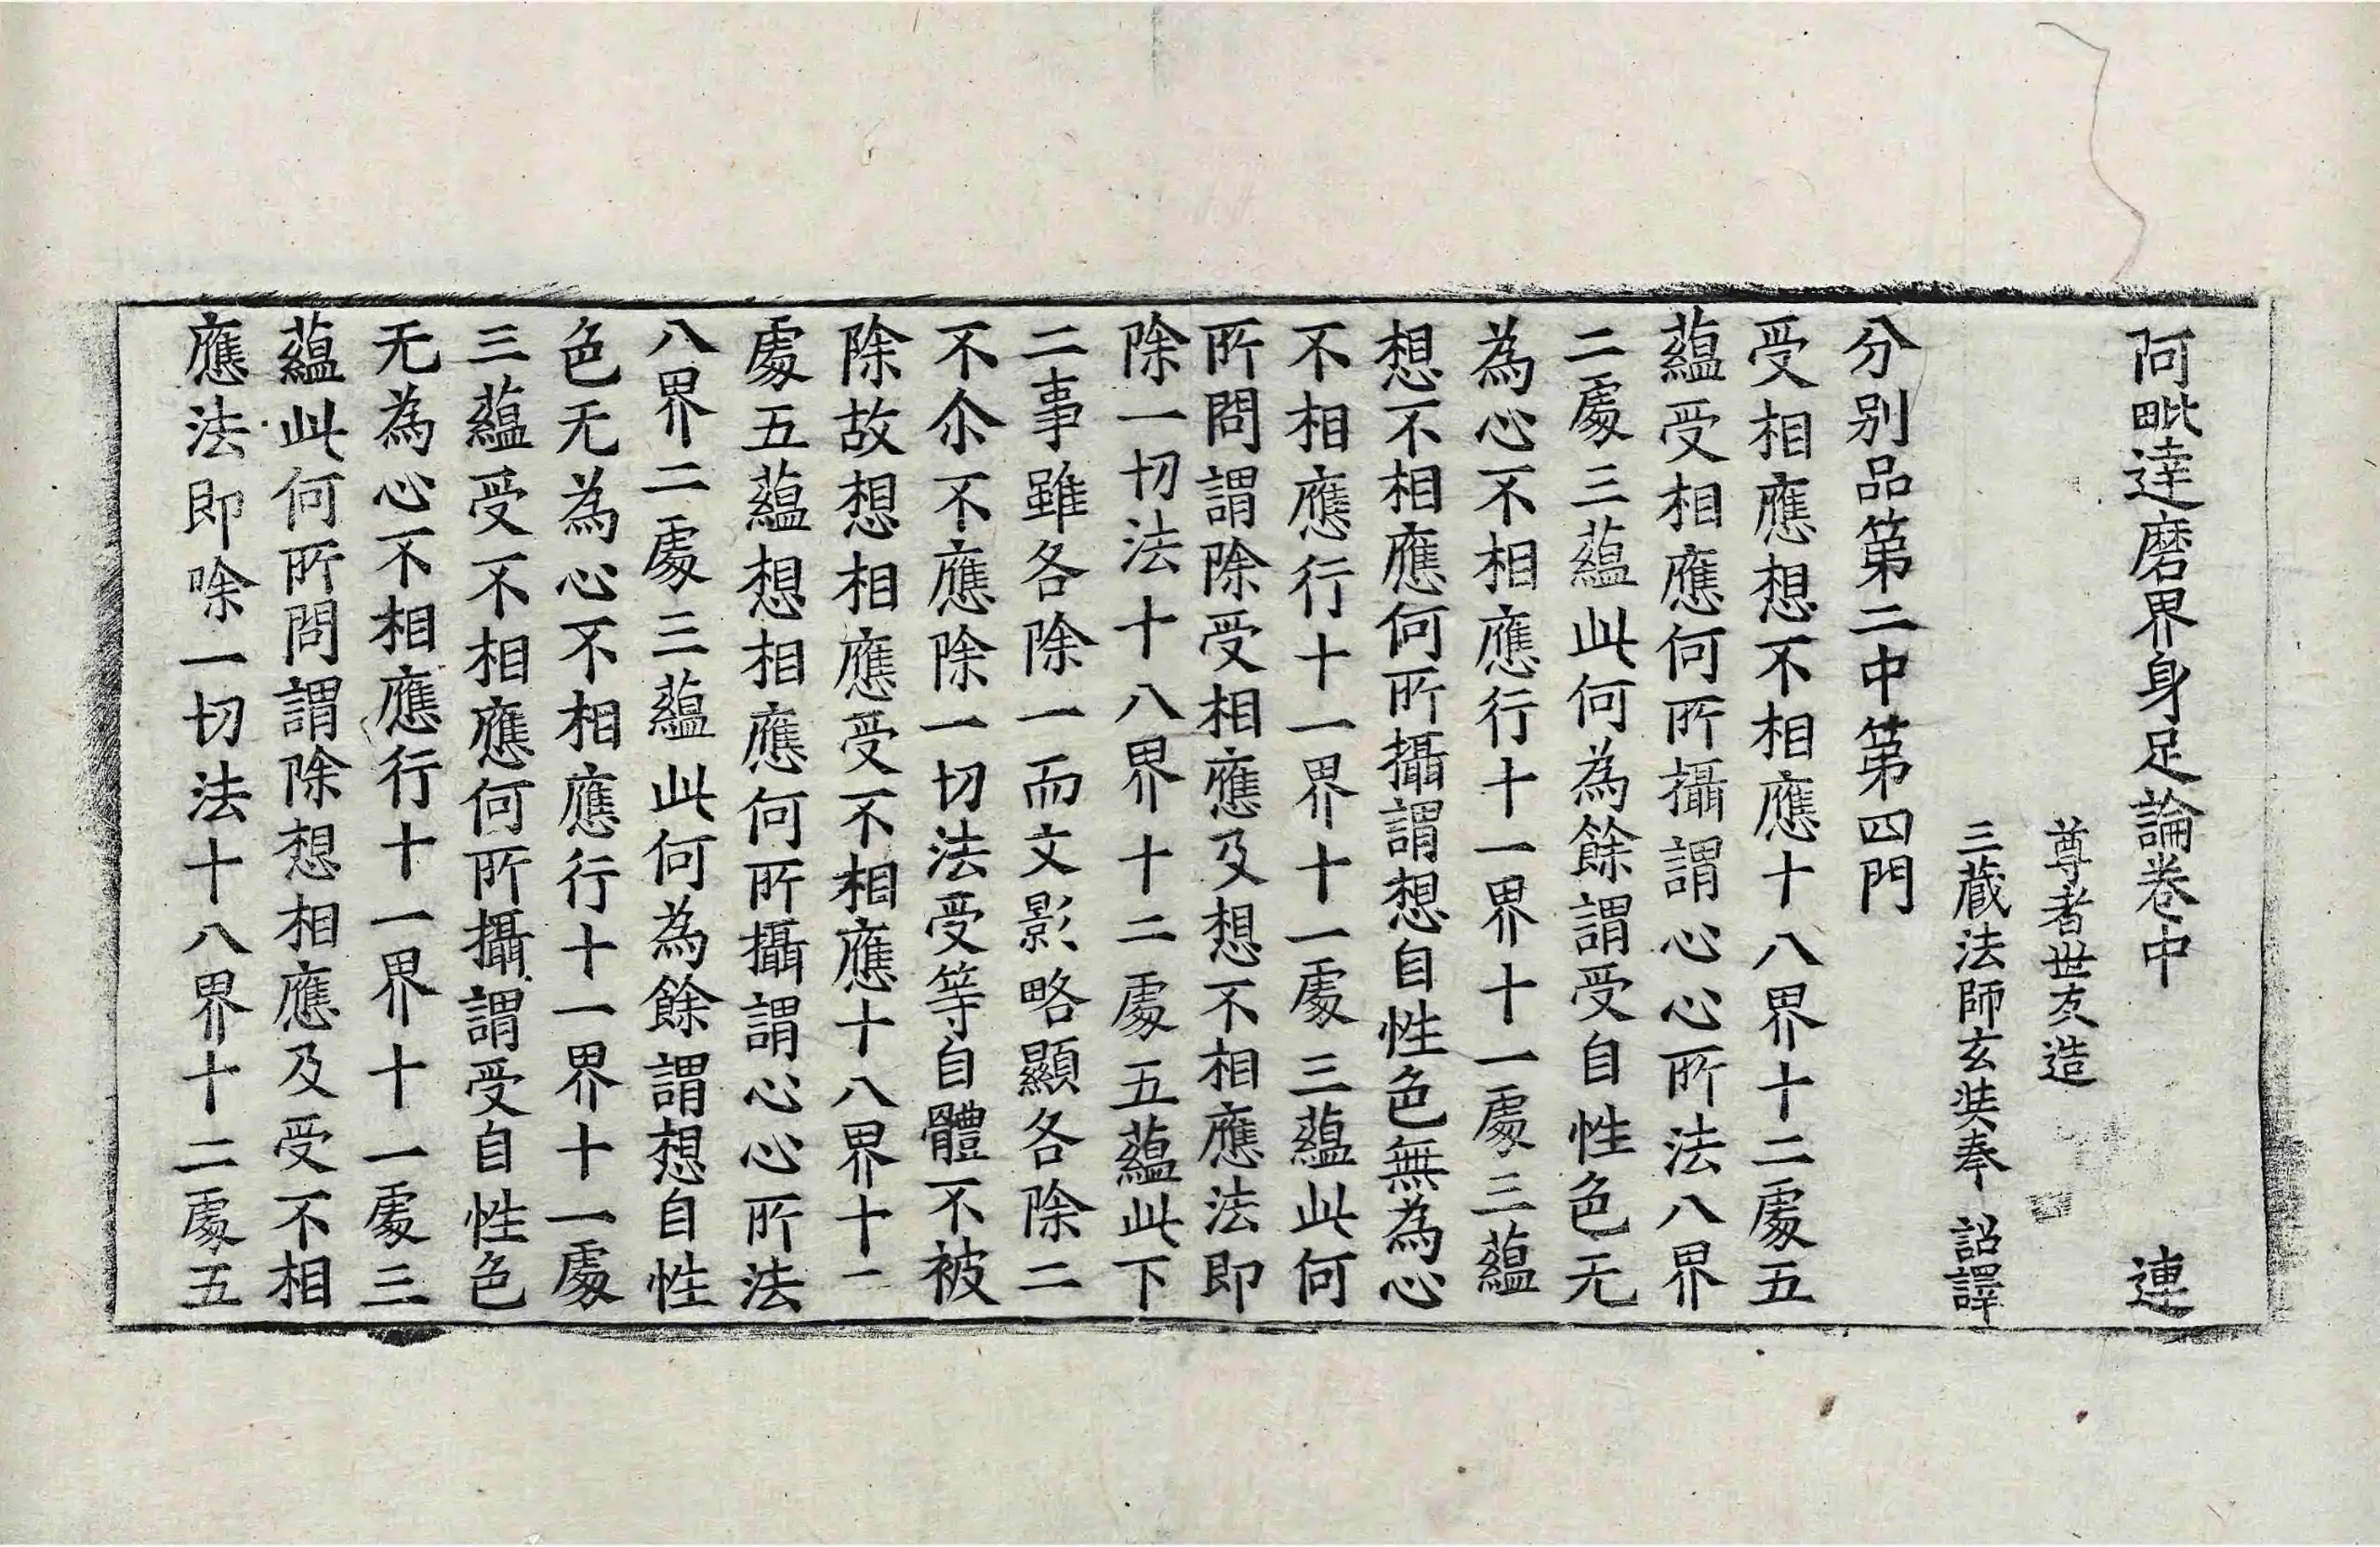 阿毗達磨界身足論卷中 連
尊者世友造
三藏法師玄奘奉 詔譯
分别品第二中第四門
受相應想不相應十八界十二處五
蘊受相應何所攝謂心心所法八界
二處三蘊此何為餘謂受自性色无
為心不相應行十一界十一處三蘊
想不相應何所攝謂想自性色無為心
不相應行十一界十一處三蘊此何
所問謂除受相應及想不相應法即
除一切法十八界十二處五蘊此下
二事雖各除一而文影略顯各除二
不尒不應除一切法受等自體不被
除故想相應受不相應十八界十一
處五蘊想相應何所攝謂心心所法
八界二處三蘊此何為餘謂想自性
色无為心不相應行十一界十一處
三蘊受不相應何所攝謂受自性色
无為心不相應行十一界十一處三
蘊此何所問謂除想相應及受不相
應法即除一切法十八界十二處五